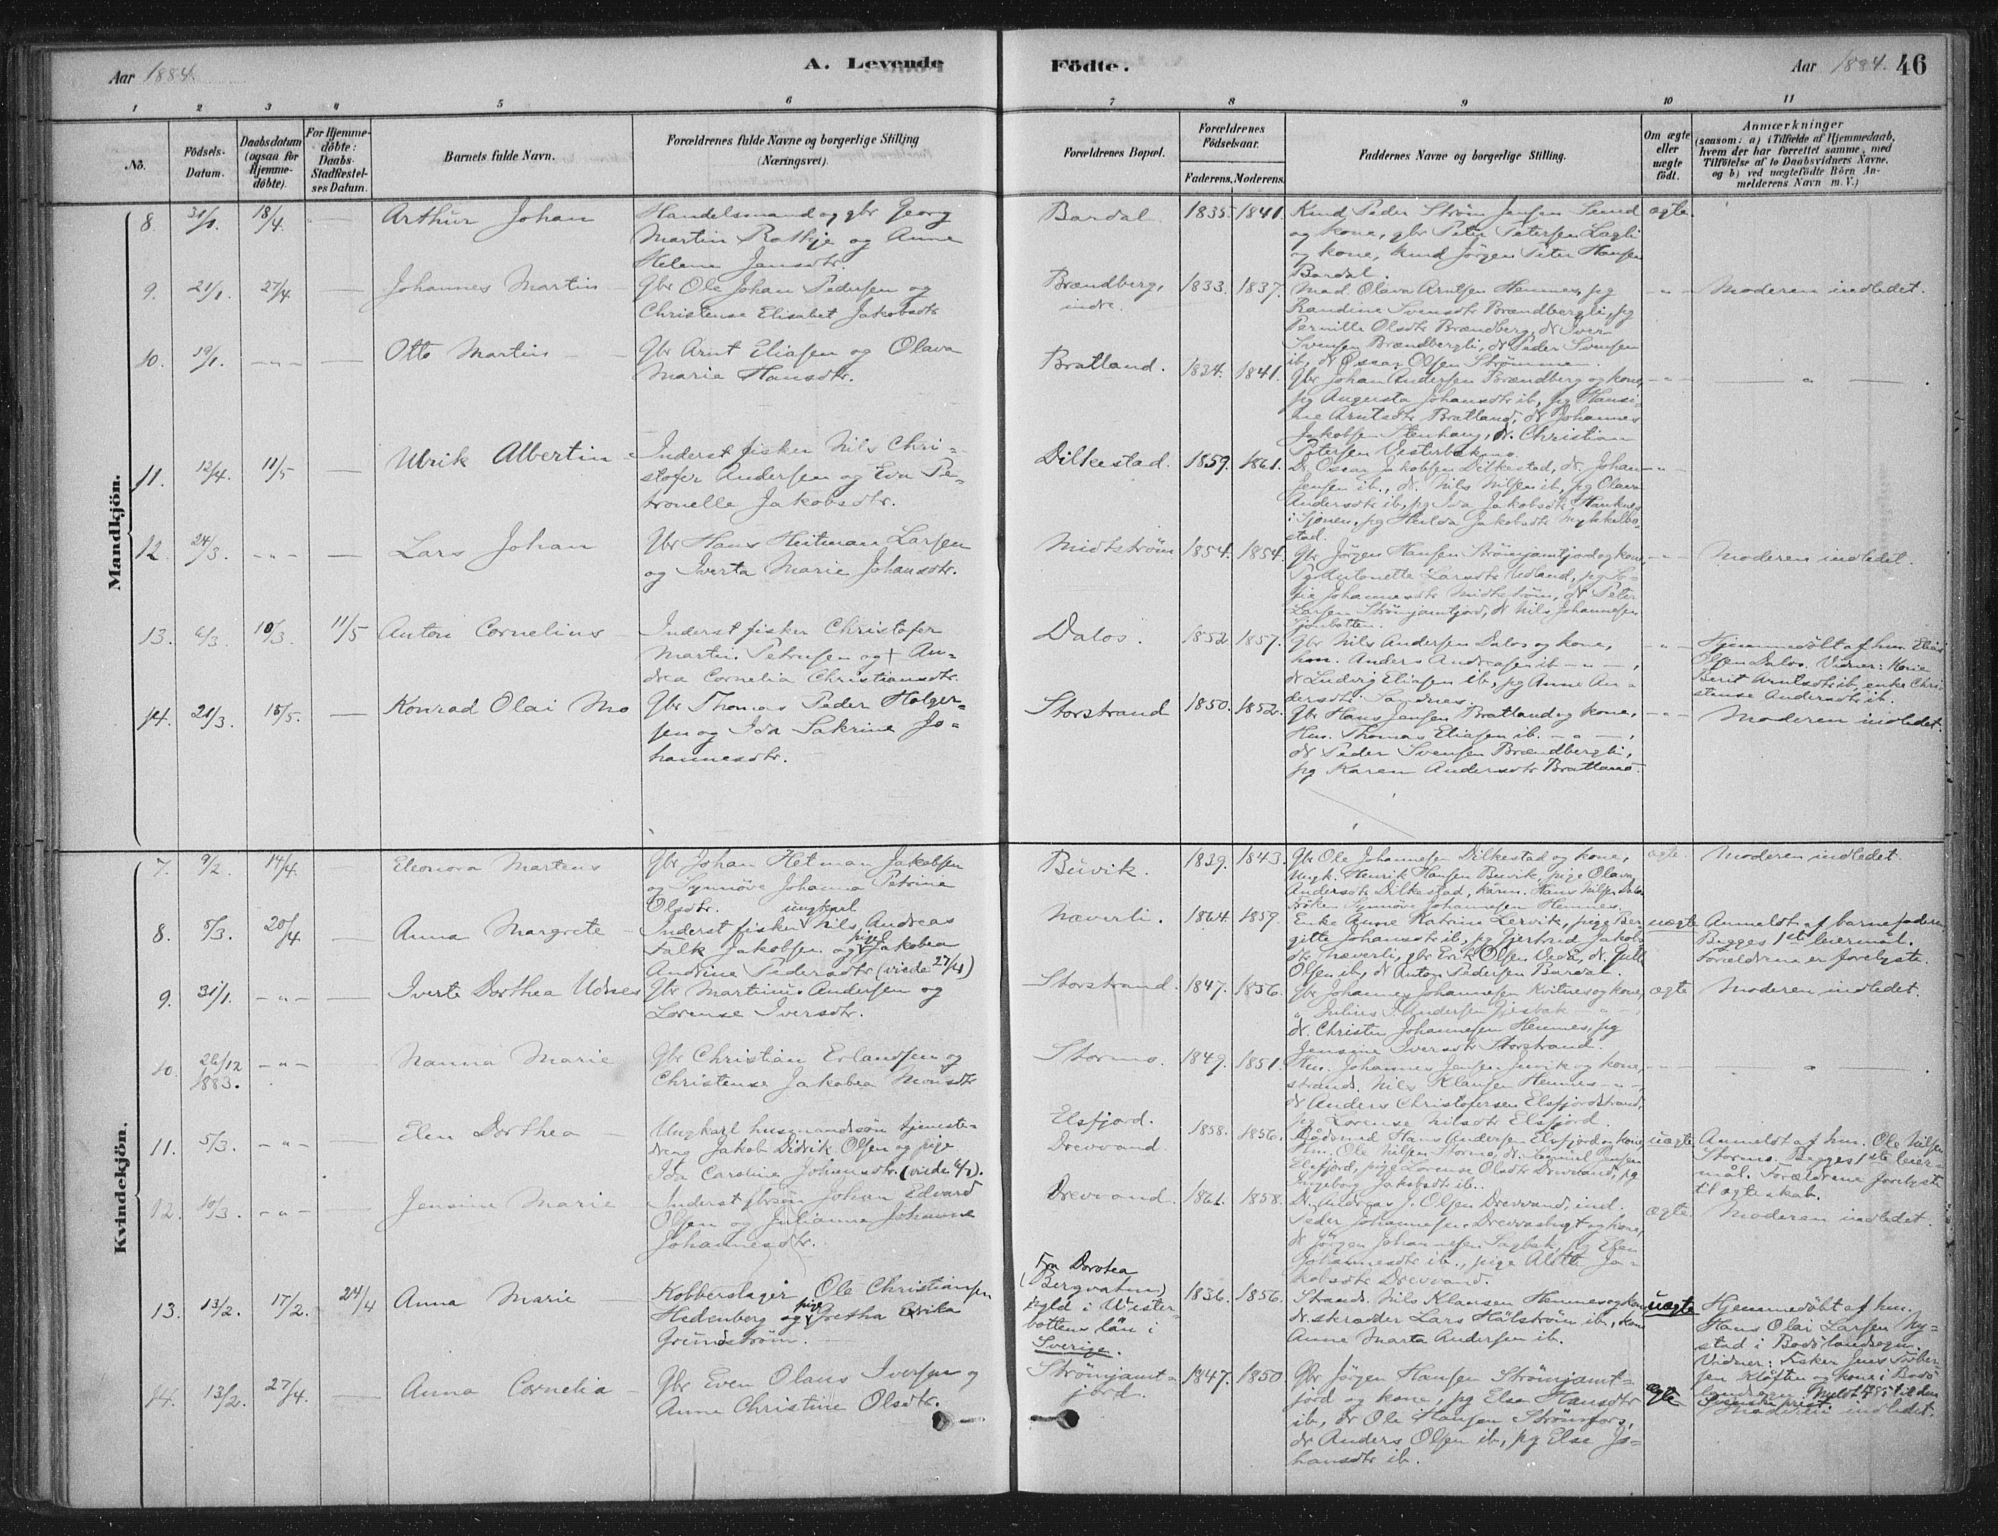 Aar 1884.
A. Levende
Fødte.
Aar 1884. 46
1 2 3 4 5 6 7 8 9 10 11
No.
Fødsels-Datum.
Daabsdatum (ogsaa for Hjemmedøbte).
For Hjemmedøbte: Daabs Stadfæstelses Datum.
Barnets fulde Navn.
Forældrenes fulde Navne og borgerlige Stilling (Næringsvei).
Forældrenes Bopæl.
Forældrenes Fødselsaar.
Faderens. Moderens.
Faddernes Navne og borgerlige Stilling.
Om ægte eller uægte født.
Anmærkninger
(saasom: a) i Tilfælde af Hjemmedaab, hvem der har forrettet samme, med Tilføielse af to Daabsvidners Navne, og b) ved uægtefødte Børn Anmelderens Navn m. V.)
Mandkjön.
8. 18/4. — Arthur Johan
Handelsmand og gbr Georg
Martin Rathje og Anne
Helene Jensdtr.
Bardal. 1835. 1841.
og kone, gbr Peter Petersen
og kone, Jørgen Peter Hansen
Bardal.
ægte
9. 21/1. 27/4. — Johannes Martin
Gbr Ole Johan Pedersen og
Christense Elisabet Jakobsdtr
Brændberg, indre. 1833. 1837.
Mad. Olava Arntsen Hemnes, pg
Randine Svensdtr Brændbergli, pg
Pernille Olsdtr Brændberg, dr Iver
Svensen Brændbergli, dr Peder Svensen
ib, dr Oscar Olsen Strømmen.
-"- Moderen indledet.
10. 19/1. -"- — Otto Martin
Gbr Arnt Eliasen og Olava
Marie Hansdtr.
Bratland. 1834. 1841.
Gbr Johan Andersen Brændberg og kone,
pg Augusta Johansdtr ib, pg Hansi-
ne Arntsdtr Bratland, dr Johannes
Jakobsen Stenhaug, dr Christian
Petersen
-"- — " —
11. 12/4. 11/5 — Ulrik Albertin
Inderst fisker Nils Chri-
stofer Andersen og Eva Pe-
tronelle Jakobsdtr.
Dilkestad. 1859. 1861.
Dr. Oscar Jakobsen Dilkestad, dr. Johan
Jensen ib., dr. Nils Nilsen ib, pg Olava
Andersdtr ib, pg Ida Jakobsdtr
i Sjonen, pg Hulda Jakobsdtr
stad.
-"-
12. 24/3. -"- — Lars Johan
Gbr Hans Heitman Larsen
og Iverta Marie Johansdtr.
Midtstrøm 1854. 1854.
Gbr Jørgen Hansen Strømjamtjord og kone,
Pg Antonette Larsdtr
Johannesdtr Midtstrøm, dr Peter
Larsen Strømjamtjord, dr Nils Johannesen
-"- Moderen indledet.
13. 6/3 10/3. 11/5 Anton Cornelius
Inderst fisker Christofer
Martin Petersen og + An-
drea Cornelia Christiansdtr.
Dalos. 1852 1857.
Gbr Nils Andersen Dalos og kone,
hm. Anders Andreasen ib -"-,
dr Ludvig Eliasen ib, pg Anne An-
dersdtr Sandnes.
-"- Hjemmedøbt af hm Elias
Olsen Dalos. Vidner: Kone
Berit Arntsdtr ib, enke Chri-
stense Andersdtr ib.
14. 21/3. 15/5. — Konrad Olai Mo
Gbr Thomas Peder Holger-
sen og Ida Sakrine Jo-
hannesdtr.
Storstrand 1850. 1852.
Gbr Hans Jensen Bratland og kone,
Hm. Thomas Eliasen ib. -"-,
dr Peder Svensen Brændbergli,
pg Karen Andersdtr Bratland.
-"- Moderen indledet.
Kvindekjön.
7. 9/2. 14/4. — Eleonora Martens
Gbr Johan Hetman Jakobsen
og Synnøve Johanna Petrine
Olsdtr.
Buvik. 1839. 1843.
Gbr Ole Johannesen Dilkestad og kone,
Ungk. Henrik Hansen Buvik, pige Olava
Andersdtr Dilkestad, Hans Nilsen
Synnøve Johannesen Hemnes.
ægte. Moderen indledet.
8. 8/3. 20/4 — Anna Margrete
Inderst fisker ungkarl Nils Andreas
Falk Jakobsen og pige Jakobea
Andrine Pedersdtr (viede 27/4)
Næverli. 1864. 1859.
Enke Anne Katrine Lervik, pige Ber-
gitte Johansdtr ib, pg Gjertrud Jakobs-
dtr Næverli, gbr Erik Olsen
Olsen ib, dr Anton Pedersen Bardal.
uægte Anmeldt af barnefaderen
Begges 1ste leiermål.
Forældrene er forelyste.
9. 31/1. -"- — Iverte Dorthea Udnes
Gbr Martinus Andersen og
Lorense Iversdtr.
Storstrand. 1847. 1856.
Gbr Johannes Johannesen Kvitnes og kone,
" Julius Andersen -"-,
dr. Christen Johannesen Hemnes, pg
Jensine Iversdtr Storstrand.
ægte Moderen indledet.
10. 26/12 1883. -"- — Nanna Marie
Gbr Christian Erlandsen og
Christense Jakobea Monsdtr
Stormo. 1849. 1851.
Hm. Johannes Jensen og kone,
strands. Nils Klausen Hemnes -"-,
dr Anders Christofersen Elsfjordstrand,
pg Lorense Nilsdtr Elsfjord.
-"- — " —
11. 5/3. -"- — Elen Dorthea
Ungkarl husmandssøn tjeneste-
dreng Jakob Didrik Olsen og pige
Ida Caroline Johansdtr.
Elsfjord.
Drevvand 1858. 1856.
Hans Andersen Elsfjord og kone,
Hm. Ole Nilsen Stormo,
Elsfjord, pige Lorense Olsdtr Drevvand, pg
Ingeborg Jakobsdtr ib.
uægte Anmeldt af hm. Ole Nilsen
Stormo. Begges 1ste leier-
mål. Forældrene forelyste
til ægteskab.
12. 10/3. -"- — Jensine Marie
Inderst gbrsøn Johan Edvard
Olsen og Julianne Johanne
Johannesdtr.
Drevvand. 1861. 1858.
Dr. Andreas J. Olsen Drevvand, ind.
Peder Johannesen og kone,
dr Jørgen Johannesen Sagbak, pg Elen
Johannesdtr ib., pige Alette Ja-
kobsdtr Drevvand.
ægte Moderen indledet.
13. 13/2. 17/2. 24/4 Anna Marie
Kobberslager Ole Christiansen
Hedenborg og pige Gretha Erika
Grundstrøm.
Fra Dorotea
(Bergvattnet)
sogld i Wester-
bottens län i
Sverige.
1836. 1856.
Strands. Nils Klausen Hemnes og kone,
dr. skrædder Lars Hälström ib,
Anne Marta Andersen ib.
uægte Hjemmedøbt af hm.
Hans Olai Larsen Ny-
stad i Bodø landsogn.
Vidner: Fisker Jens
og kone i Bodø
landsogn.
14. 13/2. 27/4. — Anna Cornelia
Gbr Even Olaus Iversen og
Anne Christine Olsdtr.
Strømjamt-
jord. 1847. 1850
Gbr Jørgen Hansen Strømjamt-
jord og kone, pg Else Hansdtr
ib, dr Ole Hansen Strømfors,
dr Anders Olsen ib, pg Else Jo-
hansdtr ib.
ægte Moderen indledet.